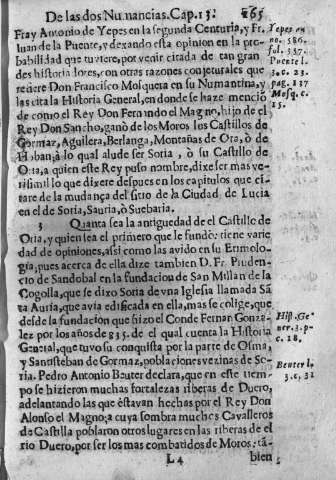 De las dos Numancias. Cap. 13. 265
Fray Antonio de Yepes en la segunda Centuria, y Fr.
Iuan de la Puente, y dexando esta opinion en la pro-
babilidad que tuviere, por venir citada de tan gran
des historiadores, con otras razones conjeturales que
refiere Don Francisco Mosquera en su Numantina, y
las cita la Historia General, en donde se haze menciõ
de como el Rey Don Fernando el Magno, hijo de el
Rey Don Sancho, ganò de los Moros los Castillos de
Gormaz, Aguilera, Berlanga, Montañas de Ora, ò de
à lo qual alude ser Soria, ò su Castillo de
Oria, a quien este Rey puso nombre, dixe ser mas ve-
risimil lo que dixere despues en los capitulos que ci-
tare de la mudança del sitio de la Ciudad de Lucia
en el de Soria, Sauria, ò Suebaria.
3 Quanta sea la antiguedad de el Castillo de
Oria, y quien sea el primero que le fundò: tiene varie
dad de opiniones, assi como las avido en su Etimolo-
gia, pues acerca de ella dize tambien D. Fr. Pruden-
cio de Sandobal en la fundacion de San Millan de la
Cogolla, que se dixo Soria de vna Iglesia llamada Sã
ta Auria, que avia edificada en ella, mas se colige, que
desde la fundacion que hizo el Conde Fernan Gonza
lez por los años de 935. de el qual cuenta la Historia
General, que tuvo su conquista por la parte de Osma,
y Santisteban de Gormaz, poblaciones vezinas de So-
ria. Pedro Antonio Beuter declara, que en este tiem-
po se hizieron muchas fortalezas riberas de Duero,
adelantando las que estavan hechas por el Rey Don
Alonso el Magno; a cuya sombra muchos Cavalleros
de Castilla poblaron otros lugares en las riberas de el
rio Duero, por ser los mas combatidos de Moros: tã-
L 4 bien
Yepes en
no. 586.
fol. 337.
Puente l.
3. c. 23.
pag. 137
Mosq. c.
15.
Hist. Ge-
ner. 3. p.
c. 18.
Beuter l.
3. c. 31